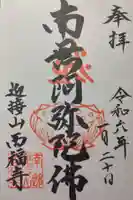 奉拝
令和六年
一月二十日
南無阿弥陀佛
西福寺